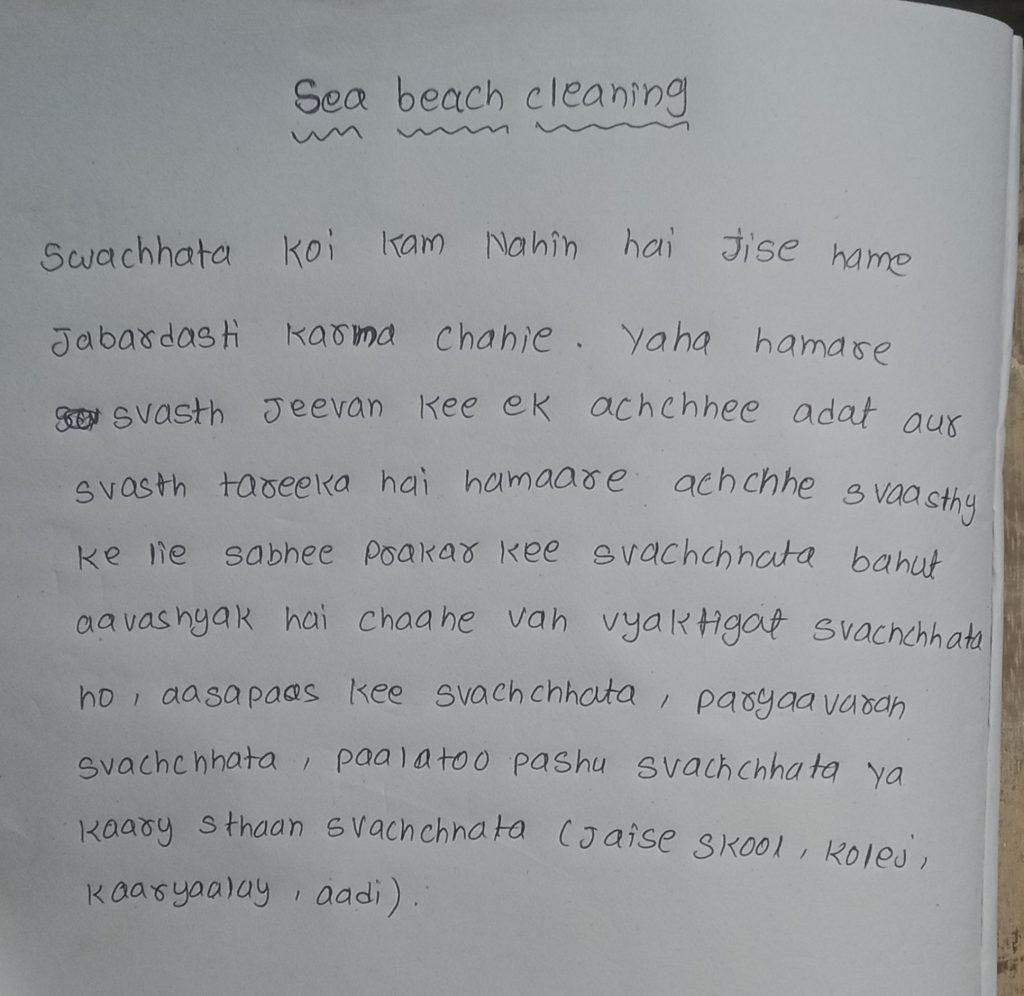 Sea beach cleaning
Swachhata Koi Kam Nahin hai Jise hame
Jabardasti Karma Chahie. Yaha hamare
svasth Jeevan Kee ek achchhee adat aur
svasth tareeka hai hamaare achchhe svaasthy
ke lie sabhee Prakar kee svachchhata bahut
aavashyak hai chaahe vah vyaktigat svachchhata
ho, aasapaas kee svachchhata, paryaavaran
svachchhata, paalatoo pashu svachchhata ya
kaary sthaan svachchhata (Jaise skool, kolej,
kaaryaalay, aadi).